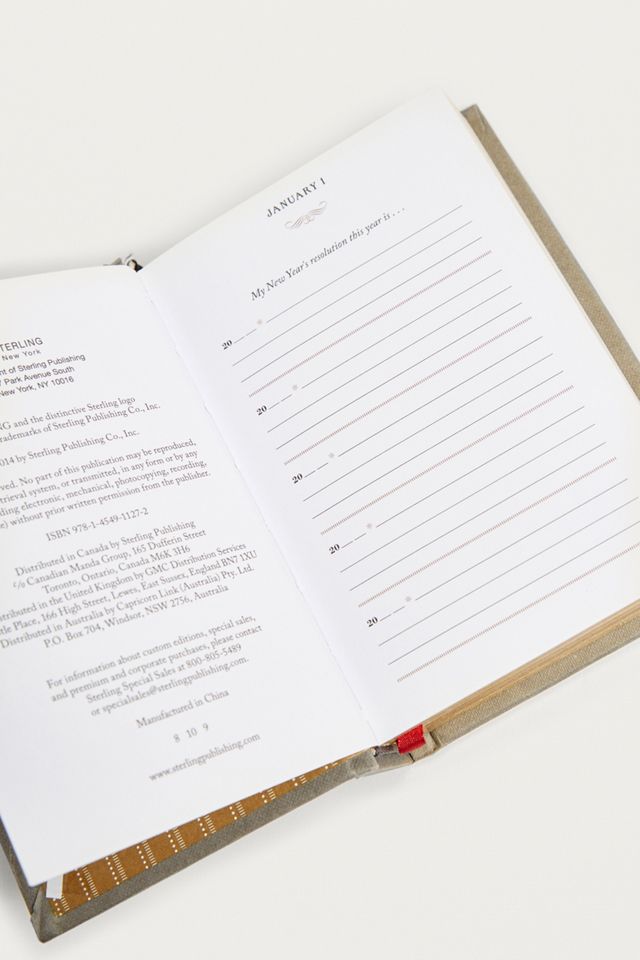 STERLING
New York
of Sterling Publishing
Park Avenue South
New York, NY 10016
and the distinctive Sterling logo
of Sterling Publishing Co., Inc.
by Sterling Publishing Co., Inc.
No part of this publication may be reproduced,
system, or transmitted, in any form or by any
electronic, mechanical, photocopying, recording,
without prior written permission from the publisher.
ISBN 978-1-4549-1127-2
Distributed in Canada by Sterling Publishing
c/o Canadian Manda Group, 165 Dufferin Street
Toronto, Ontario, Canada M6K 3H6
in the United Kingdom by GMC Distribution Services
Place, 166 High Street, Lewes, East Sussex, England BN7 1XU
Distributed in Australia by Capricorn Link (Australia) Pty. Ltd.
P.O. Box 704, Windsor, NSW 2756, Australia
For information about custom editions, special sales,
and premium and corporate purchases, please contact
Sterling Special Sales at 800-805-5489
or specialsales@sterlingpublishing.com.
Manufactured in China
8 10 9
www.sterlingpublishing.com
JANUARY 1
My New Year's resolution this year is . . .
20__ __
20__ __
20__ __
20__ __
20__ __